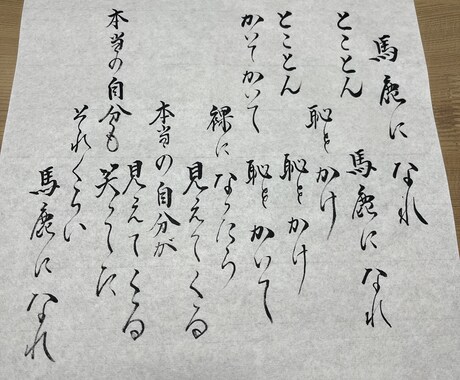 馬鹿になれ
とことん馬鹿になれ
恥をかけ
とことん恥をかけ
かいてかいて恥をかいて
裸になったら
見えてくる
本当の自分が
見えてくる
本当の自分も
笑ってた
それくらい
馬鹿になれ